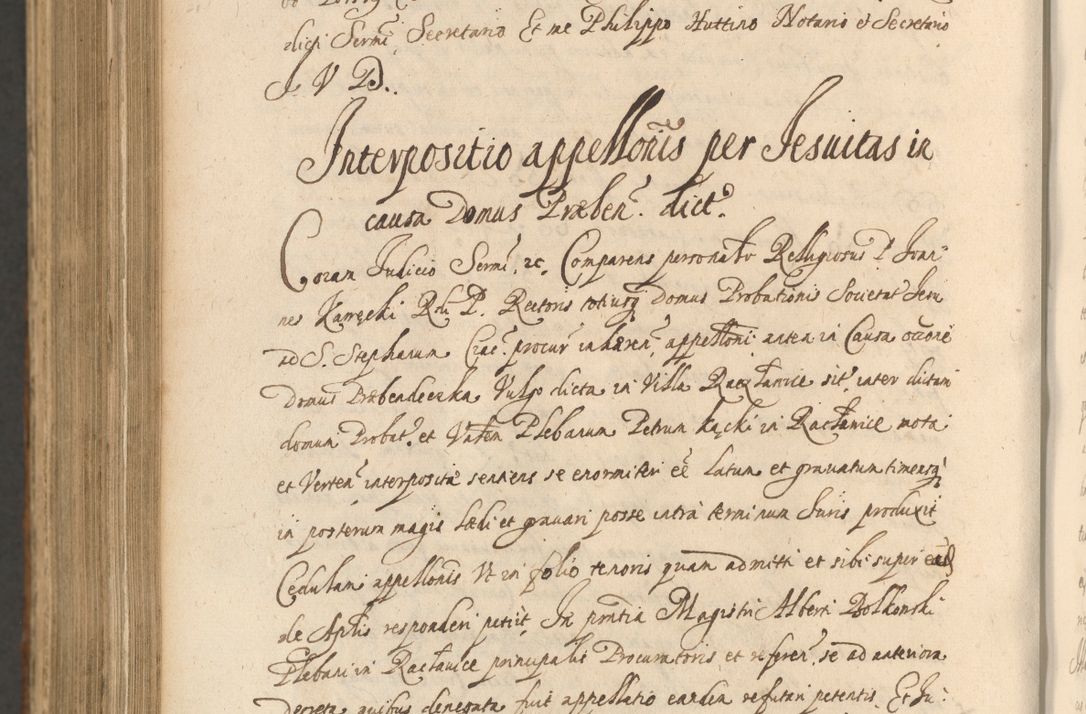 dicti Sermi Secretario Et me Philippo Huttino Notario & Secretario
J V D.
Interpositio appellonis per Iesuitas in
causa Domus Præben. dict.
Coram Judicio Sermi, &c. Comparens personalr Religiosus P. Joan
nes Kamęcki Rdi P. Rectoris totiusq Domus Probationis Societat Jesu
ad S. Stephanum Crac. procur inhæren, appelloni antea in Causa occone
Domus Præbendeczka Vulgo dicta in Villa Racłauice sit. inter dictam
domum Probat. et Valen Plebanum Petrum Kącki in Racłauice mota
et Verten interposita sentiens se enormiter ee Latum et grauatum timensq
in posterum magis Lædi et grauari posse intra terminum Juris produxit
Cedulam appellonis Vt in folio tenoris quam admitti et sibi super ead
de Aplis responderi petiit, In pntia Magistri Alberti Bolkonski
Plebani in Racłauice principalis Procuratoris et referen. se ad anteriora
Decreta quibus denegata fuit appellatio eandem refutari petentis. Et Ju: